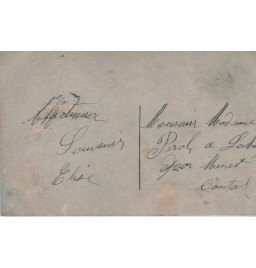 Affectueux
Souvenir
Elise
Monsieur Madame
à
par Murat
Cantal